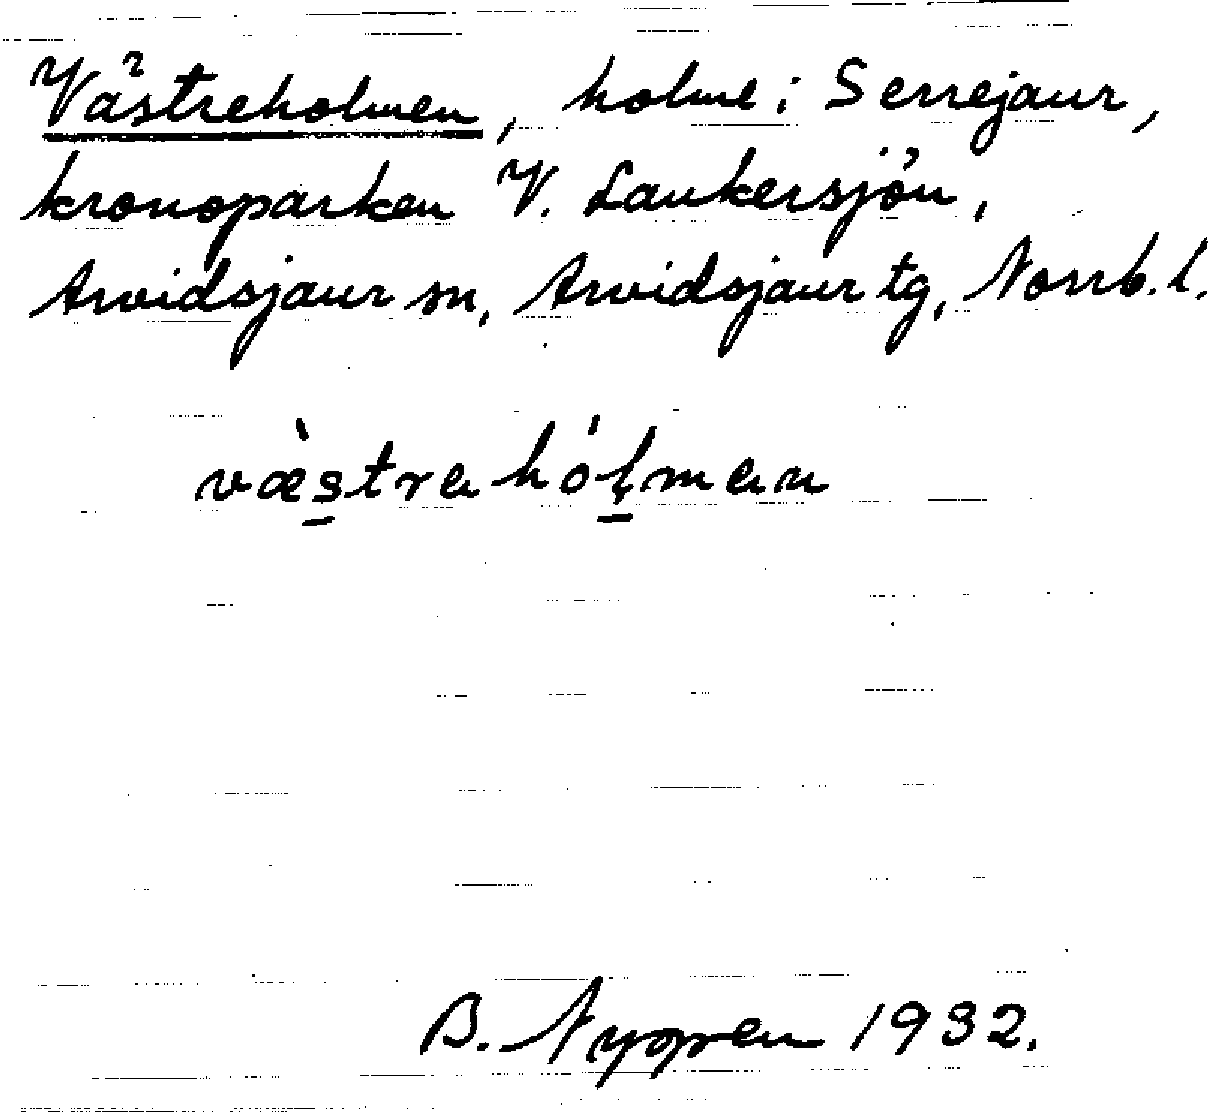 Västreholmen, holme i Serrejaur,
kronoparken V. Laukersjön,
Arvidsjaur sn, Arvidsjaur tg, Norrb. l.
væ̀s̲trahól̲man
B. Nygren 1932.